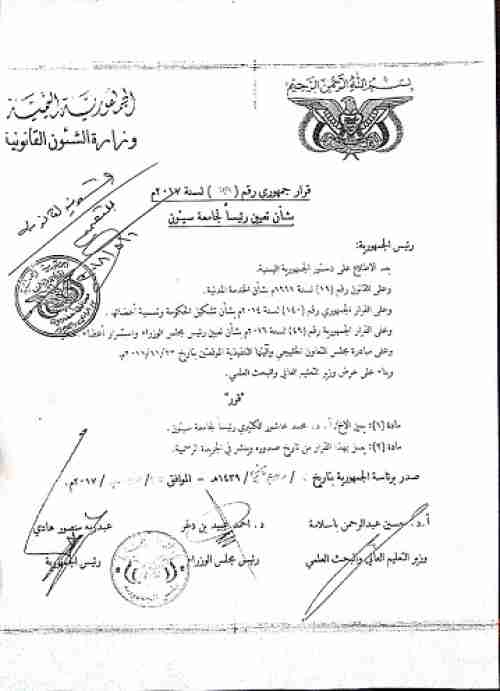 بسم الله الرحمن الرحيم
الجمهورية اليمنية
وزارة الشئون القانونية
قرار جمهوري رقم ( ) لسنة ٢٠١٧م
بشأن تعيين رئيساً لجامعة سيئون
رئيس الجمهورية:
بعد الاطلاع على دستور الجمهورية اليمنية.
وعلى القانون رقم (١٩) لسنة ١٩٩١م بشأن الخدمة المدنية.
وعلى القرار الجمهوري رقم (١٤٠) لسنة ٢٠١٤م بشأن تشكيل الحكومة وتسمية أعضائها.
وعلى القرار الجمهوري رقم (٤٩) لسنة ٢٠١٦م بشأن تعيين رئيس مجلس الوزراء واستمرار أعضاء
وعلى مبادرة مجلس التعاون الخليجي وآليتها التنفيذية الموقعتين بتاريخ ٢٠١١/١١/٢٣م.
وبناء على عرض وزير التعليم العالي والبحث العلمي.
"قرر"
مادة (١): يعين الأخ/ أ. د. محمد عاشور الكثيري رئيسا لجامعة سيئون.
مادة (٢): يعمل بهذا القرار من تاريخ صدوره وينشر في الجريدة الرسمية.
صدر برئاسة الجمهورية بتاريخ / /١٤٣٩هـ - الموافق / /٢٠١٧م.
أ.د. حسين عبدالرحمن باسلامة
وزير التعليم العالي والبحث العلمي
د. احمد عبيد بن دغر
رئيس مجلس الوزراء
عبدربه منصور هادي
رئيس الجمهورية